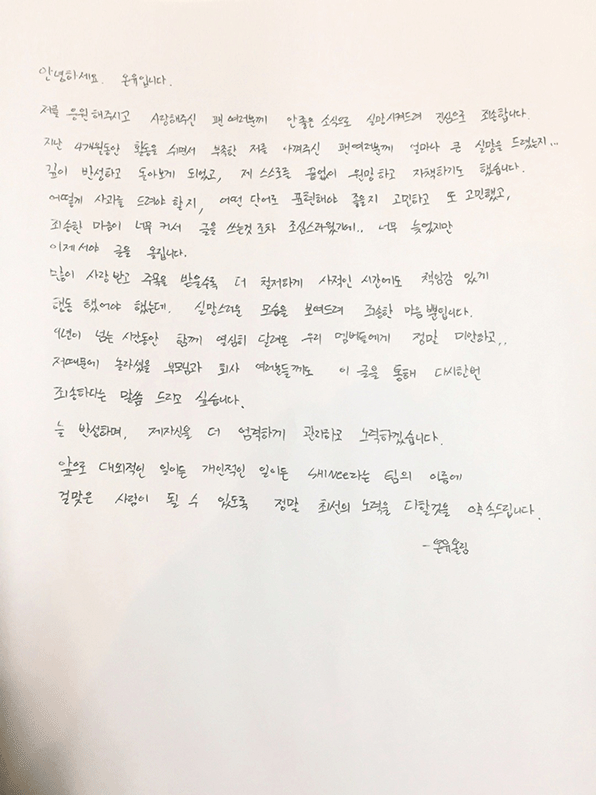 안녕하세요. 온유입니다.
저를 응원해주시고 사랑해주신 팬 여러분께 안좋은 소식으로 실망시켜드려 진심으로 죄송합니다.
지난 4개월동안 활동을 쉬면서 부족한 저를 아껴주신 팬여러분께 얼마나 큰 실망을 드렸는지...
깊이 반성하고 돌아보게 되었고, 제 스스로를 끝없이 원망하고 자책하기도 했습니다.
어떻게 사과를 드려야 할지, 어떤 단어로 표현해야 좋을지 고민하고 또 고민했고,
죄송한 마음이 너무 커서 글을 쓰는것 조차 조심스러웠기에.. 너무 늦었지만
이제서야 글을 올립니다.
많이 사랑 받고 주목을 받을수록 더 철저하게 사적인 시간에도 책임감 있게
행동 했어야 했는데. 실망스러운 모습을 보여드려 죄송한 마음 뿐입니다.
9년이 넘는 시간동안 함께 열심히 달려온 우리 멤버들에게 정말 미안하고..
저때문에 놀라셨을 부모님과 회사 여러분들께도 이 글을 통해 다시한번
죄송하다는 말씀 드리고 싶습니다.
늘 반성하며, 제자신을 더 엄격하게 관리하고 노력하겠습니다.
앞으로 대외적인 일이든 개인적인 일이든 SHINee라는 팀의 이름에
걸맞은 사람이 될 수 있도록 정말 최선의 노력을 다할것을 약속드립니다.
-온유올림